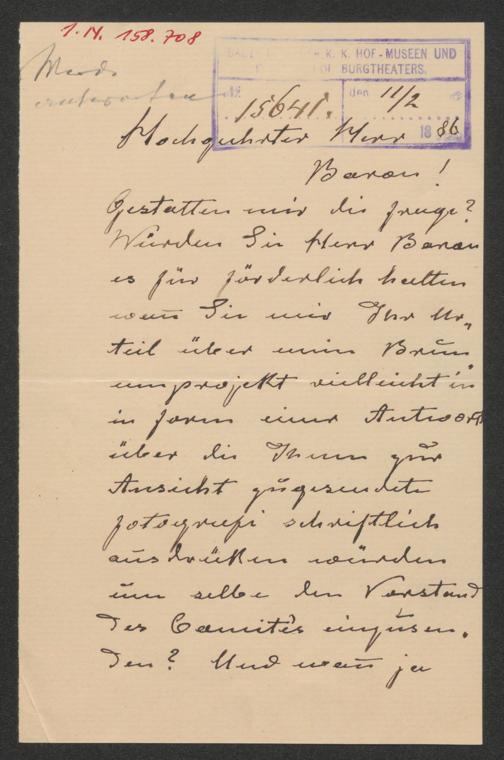 I. N. 158.708
K. K. HOF-MUSEEN UND
BURGTHEATERS.
№ 15641. den 11/2
1886
Hochgeehrter Herr
Baron!
Gestatten mir die frage?
Würden Sie Herr Baron
es für förderlich halten
wan̅ Sie mir Ihr Ur„
teil über mein Brun̅
enprojekt vielleicht in
in form einer Antwort
über die Ihnen zur
Ansicht zugesendete
fotografi schriftlich
ausdrüken würden
um selbe den Vorstand
des Comités einzusen.
den? Und wan̅ ja